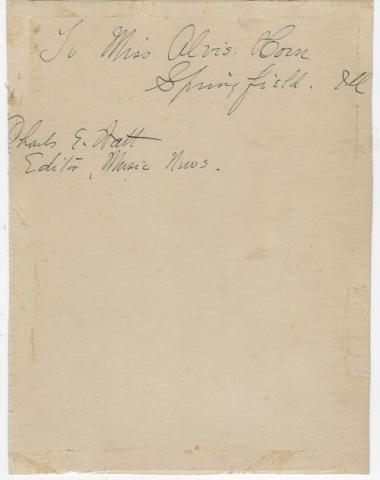 To Miss Alvis. Horn
Springfield. Ill
Charles E. Watt
Editor, Music News.